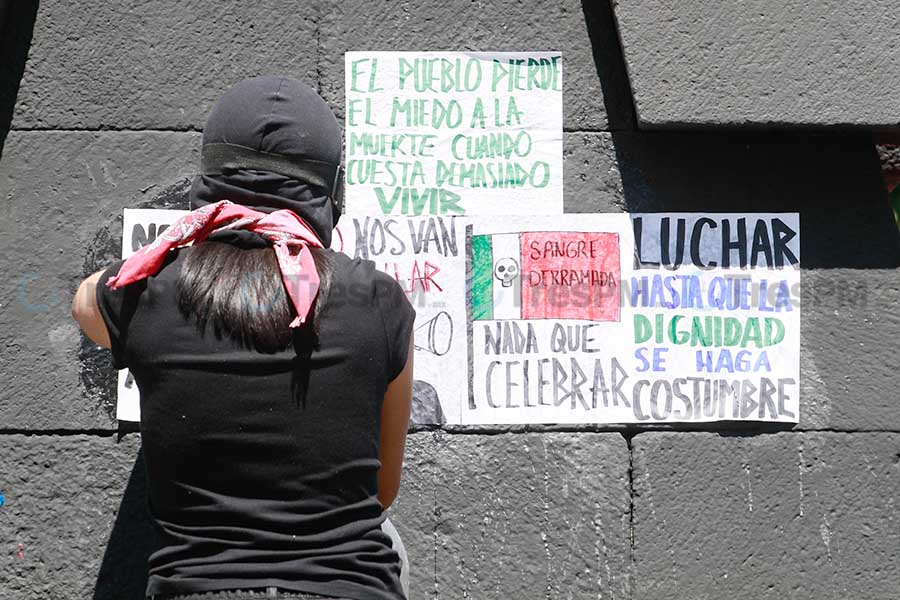 EL PUEBLO PIERDE
EL MIEDO A LA
MUERTE CUANDO
CUESTA DEMASIADO
VIVIR
NO
NOS VAN
SANGRE
DERRAMADA
NADA QUE
CELEBRAR
LUCHAR
HASTA QUE LA
DIGNIDAD
SE HAGA
COSTUMBRE
TresPM